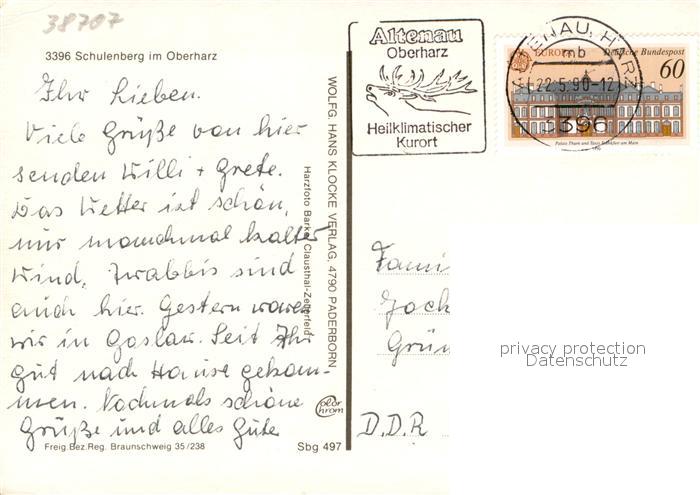 38707
3396 Schulenberg im Oberharz
Ihr Lieben.
Viele Grüße von hier
senden Willi + Grete.
Das Wetter ist schön,
nur manchmal kalter
Wind. sind
auch hier. Gestern waren
wir in Goslar. Seit Ihr
gut nach Hause gekom-
men. Nochmals schöne
Grüße und alles Gute
Freig. Bez. Reg. Braunschweig 35/238
Sbg 497
WOLFG. HANS KLOCKE VERLAG, 4790 PADERBORN
Harzfoto Barke, Clausthal-Zellerfeld
color
chrom
Altenau
Oberharz
Heilklimatischer
Kurort
ALTENAU, HARZ
mb
22.5.90-12
3396
EUROPA Deutsche Bundespost
60
Palais Thurn und Taxis Frankfurt am Main
Fami
Jock
Grün
D.D.R
privacy protection
Datenschutz